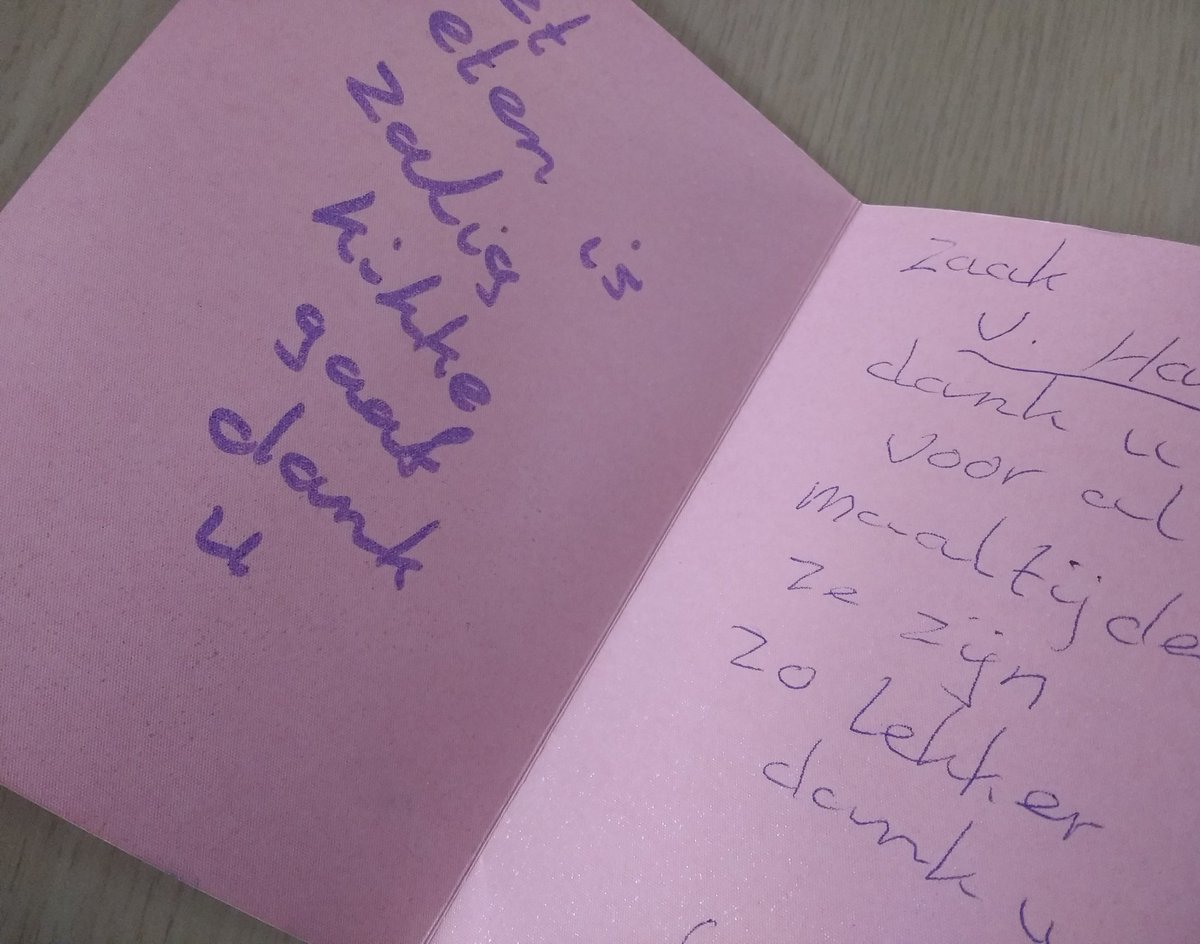 eten is
zalig
kikke
gaat
dank
u
zaak
v. Ha
dank u
voor al
maaltijde
ze zijn
zo lekker
dank u